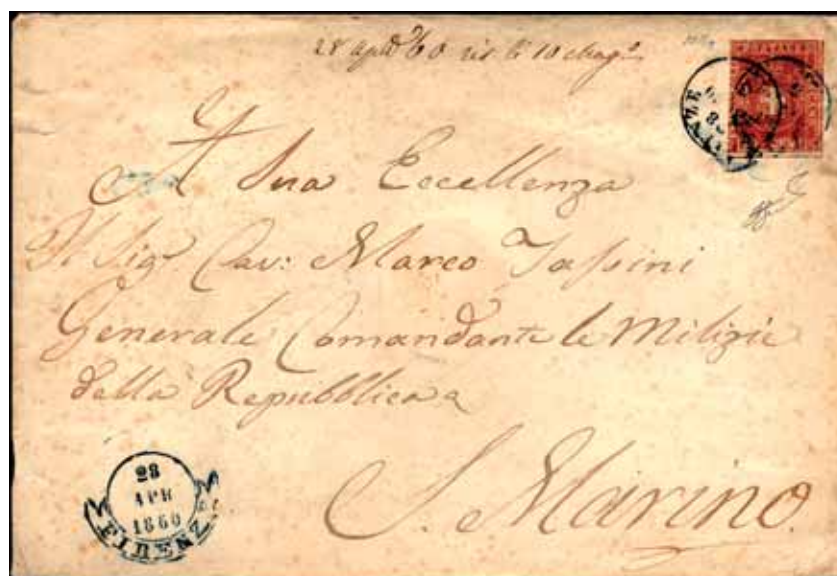 28 apr 60 ris li 10 Mag
A Sua Eccellenza
Il Sig Cav: Marco Taſsini
Generale Comandante le Milizie
della Repubblica
S. Marino.
28
APR
1860
FIRENZE